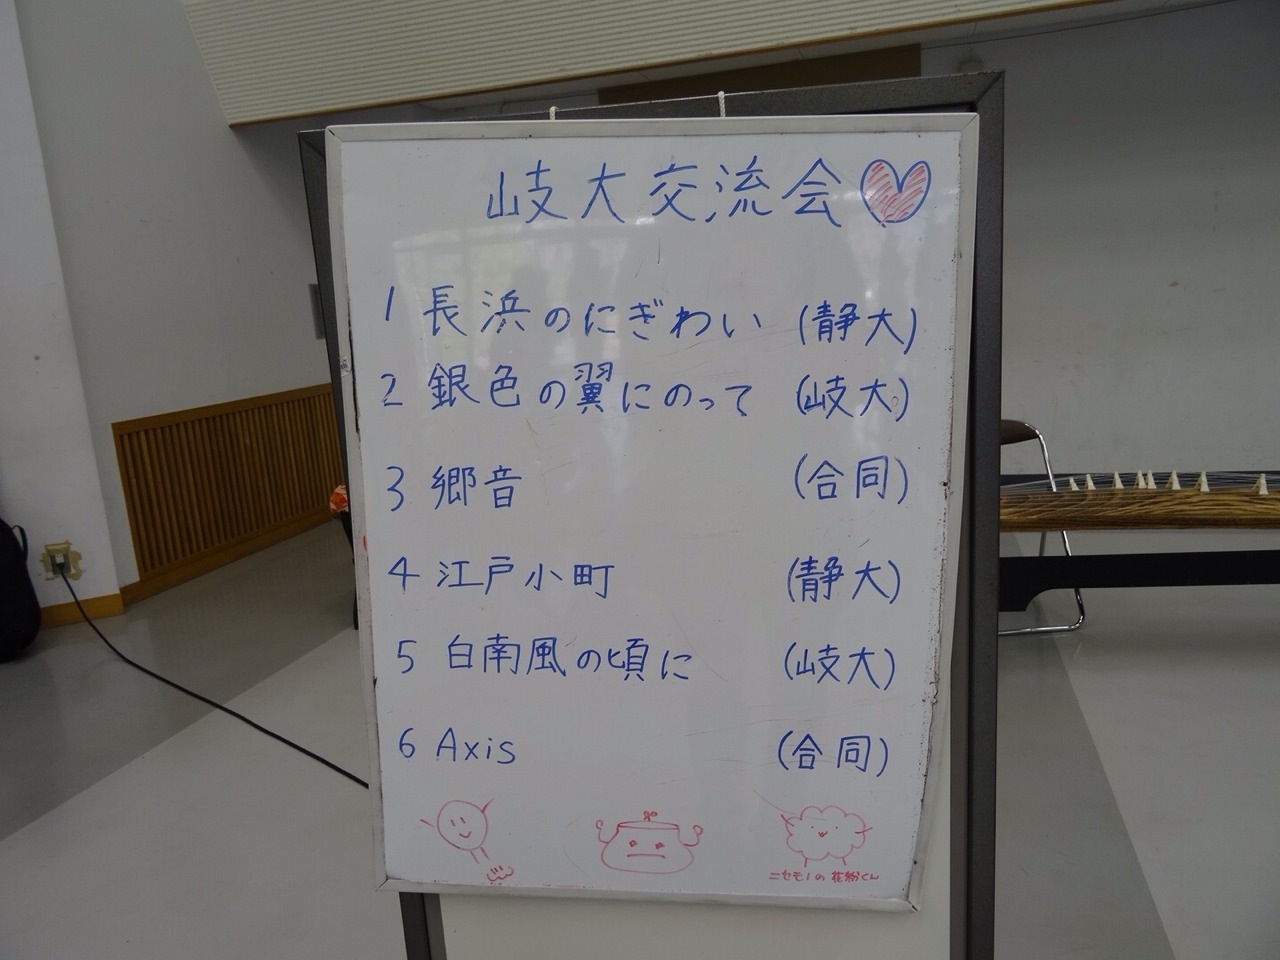 岐大交流会
1 長浜のにぎわい (静大)
2 銀色の翼にのって (岐大)
3 郷音 (合同)
4 江戸小町 (静大)
5 白南風の頃に (岐大)
6 Axis (合同)
ニセモノの花粉くん